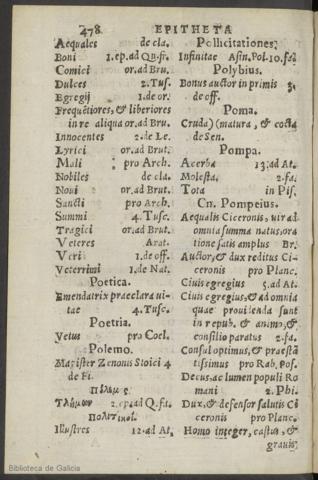 478 EPITHETA
Aequales de cla.
Boni 1.ep.ad Qu.fr.
Comici or.ad Bru.
Dulces 2.Tus.
Egregij 1.de or.
Frequētiores, & liberiores
in re aliqua or.ad Bru.
Innocentes 2.de Le.
Lyrici or.ad Brut.
Mali pro Arch.
Nobiles de cla.
Noui or.ad Brut.
Sancti pro Arch.
Summi 4.Tusc.
Tragici or.ad Brut.
Veteres Arat.
Veri 1.de off.
Veterrimi 1.de Nat.
Poetica.
Emendatrix praeclara ui-
tae 4.Tusc.
Poetria.
Vetus pro Coel.
Polemo.
Magister Zenonis Stoici 4
de Fi.
Τλήμων 2.ep.ad Q.fa.
πολιτικοὶ.
Illustres 12.ad At.
Pollicitationes.
Infinitae Asin.Pol.10.fa.
Polybius.
Bonus auctor in primis 3.
de off.
Poma.
Cruda) (matura, & cocta
de Sen.
Pompa.
Acerba 13.ad At.
Molesta. 2.fa.
Tota in Pis.
Cn. Pompeius.
Aequalis Ciceronis, uir ad
omnia summa natus, ora
tione satis amplus Br.
Auctor, & dux reditus Ci-
ceronis pro Planc.
Ciuis egregius 5.ad At.
Ciuis egregius, & ad omnia
quae prouidenda sunt
in repub. & animo, &
consilio paratus 2.fa.
Consul optimus, & praestā
tissimus pro Rab. Pos.
Decus, ac lumen populi Ro
mani 2.Phi.
Dux, & defensor salutis Ci
ceronis pro Planc.
Homo integer, castus, &
grauis
Biblioteca de Galicia